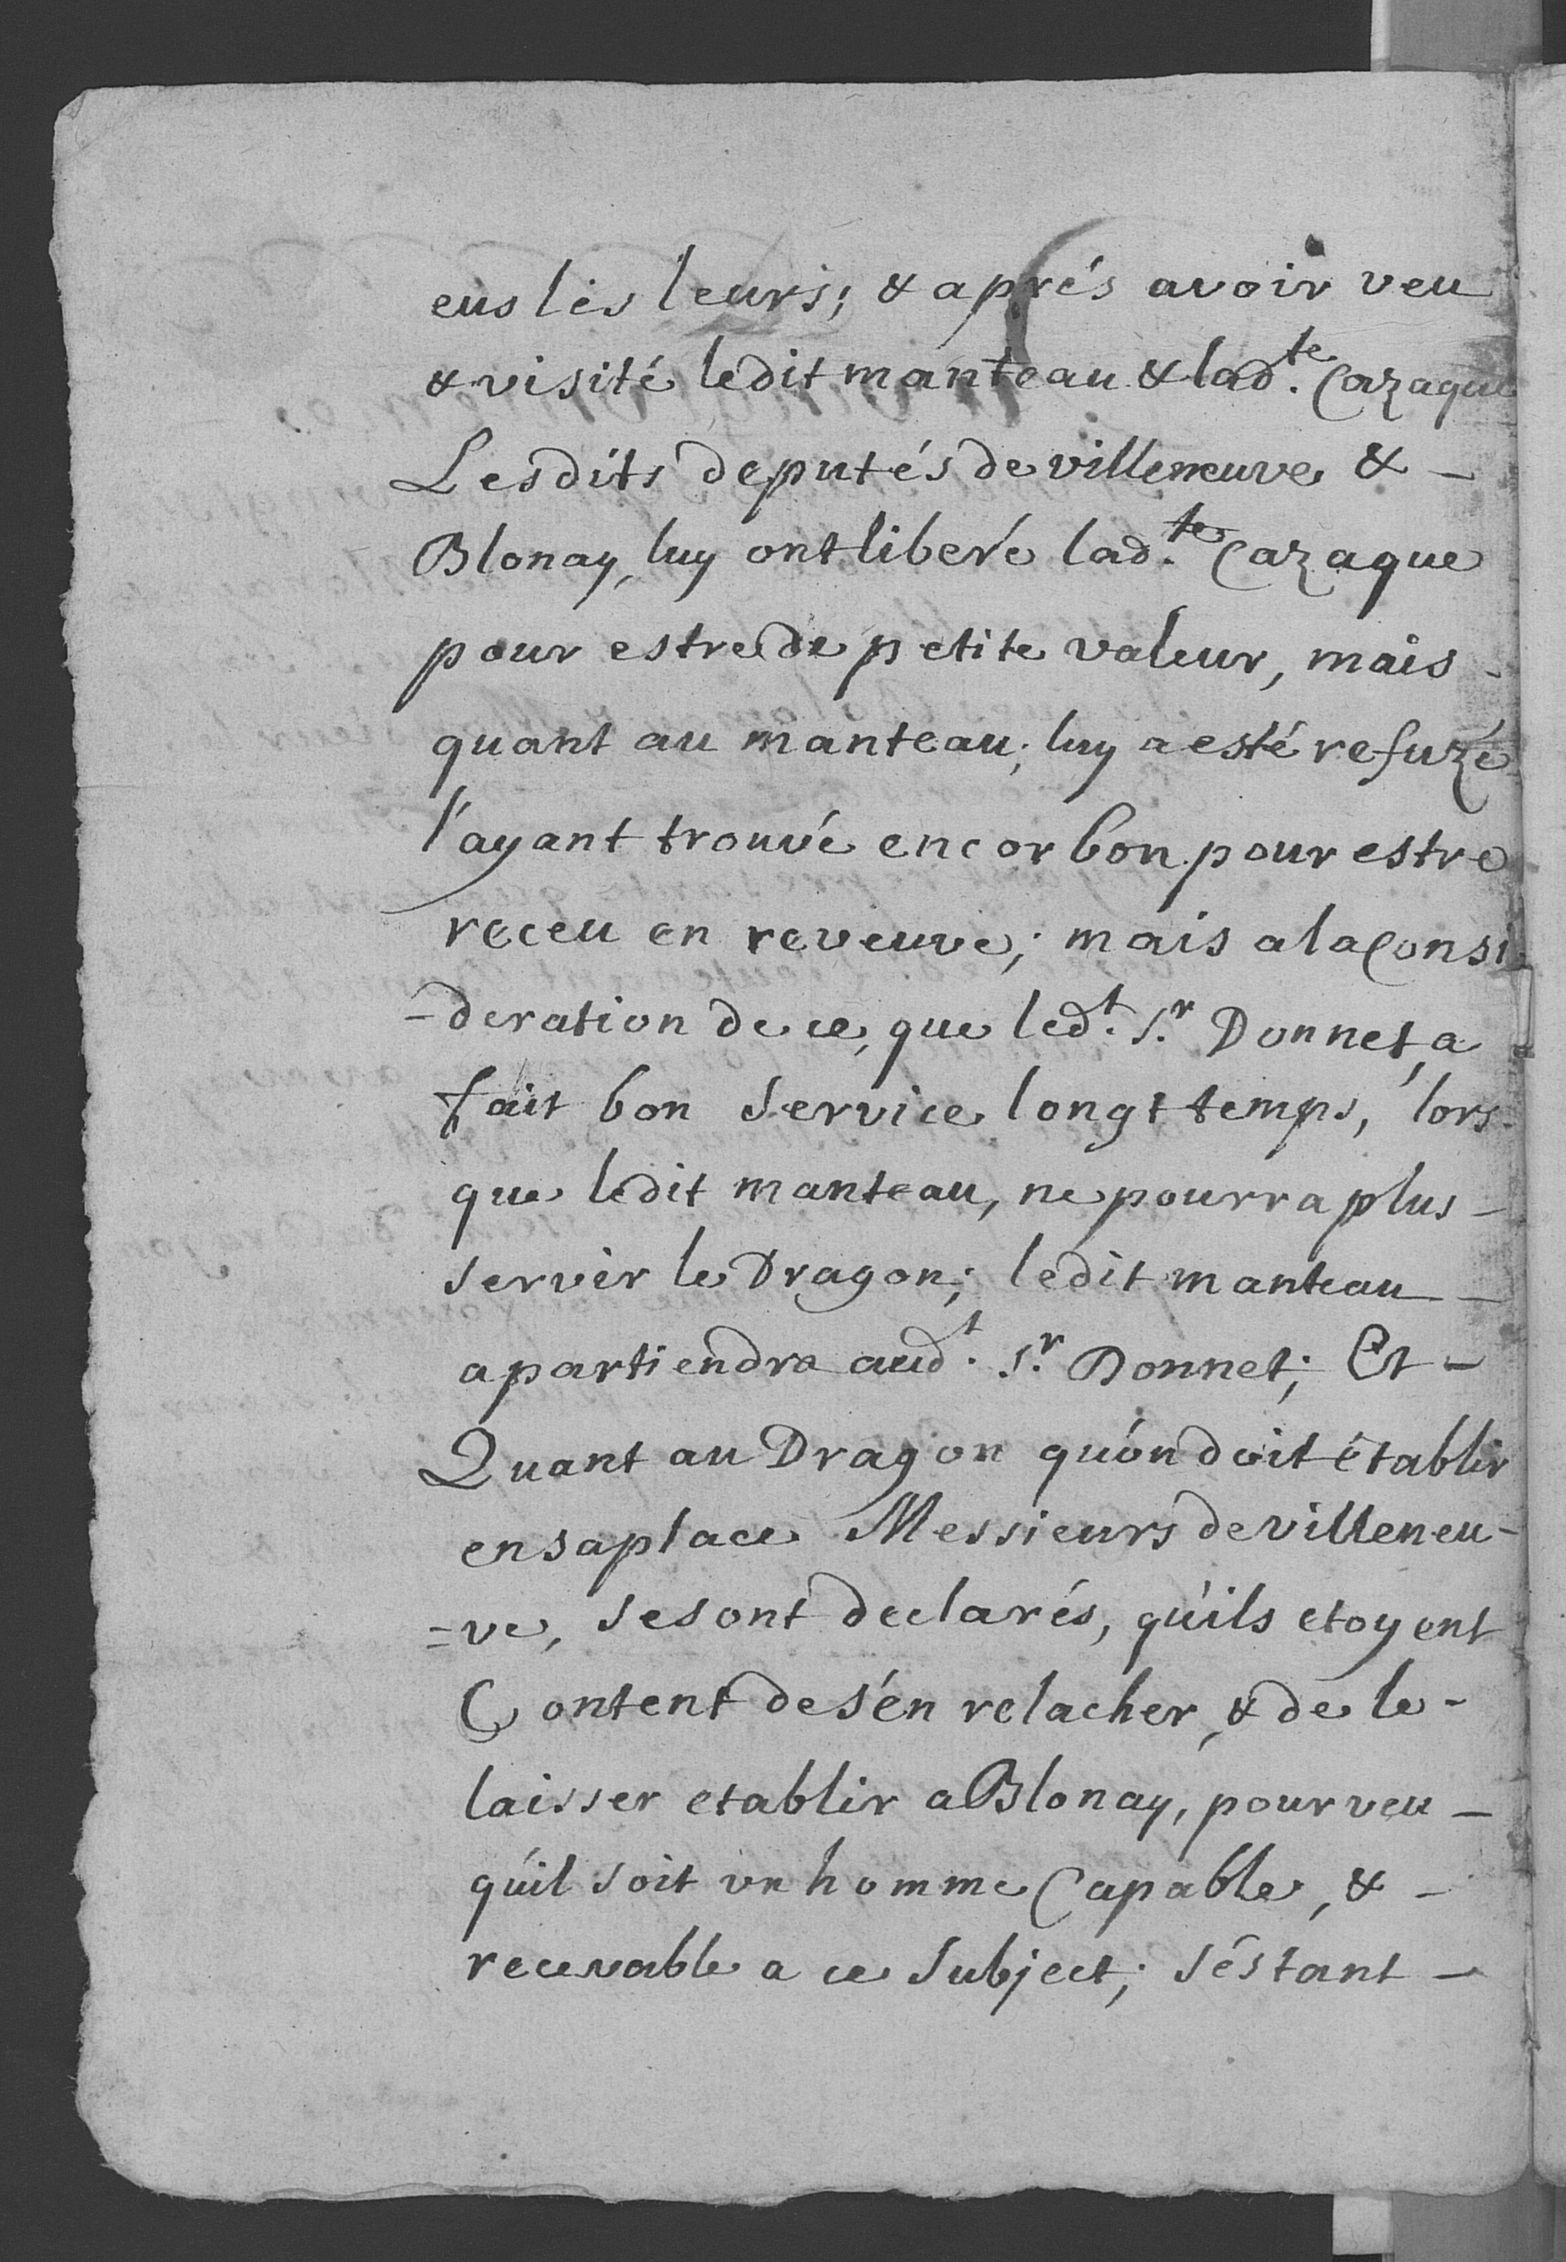 eus les leurs; & aprés avoir veu
& visité ledit manteau & lad.te Cazaque
Lesdits deputés de villeneuve & -
Blonay, luy ont liberé lad.te Cazaque
pour estre de petite valeur, mais -
quant au manteau; luy a esté refuzé
l'ayant trouvé encor bon pour estre
receu en reveuve; mais a la Consi
-deration de ce, que led.t S.r Donnet, a
fait bon service longt temps, lors
que ledit manteau, ne pourra plus -
servir le Dragon; ledit manteau -
apartiendra aud.t S.r Donnet; Et -
Quant au Dragon qu'on doit établir
en sa place Messieurs de villeneu-
=ve, se sont declarés, qu'ils etoyent
Content de s'en relacher, & de le -
laisser etablir a Blonay, pour veu -
qu'il soit un homme Capable, & -
recevable a ce Subject; s'éstant -